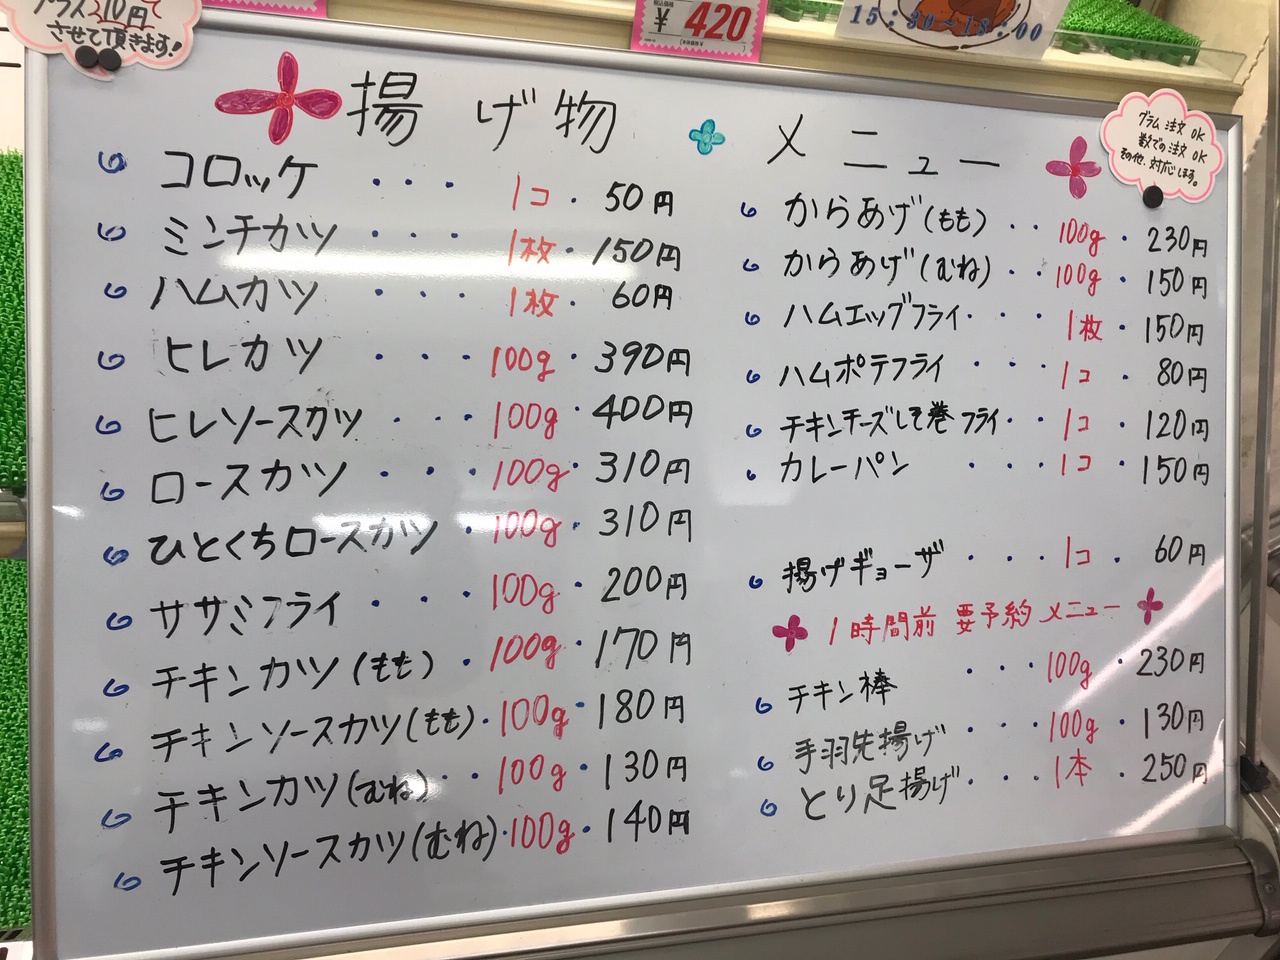 プラス10円で
させて頂きます!
税込価格
¥420
15:30~18:00
グラム注文OK
数での注文OK
その他、対応します。
揚げ物 メニュー
コロッケ ・・・ 1コ・50円
ミンチカツ ・・・ 1枚・150円
ハムカツ ・・・ 1枚・60円
ヒレカツ ・・・ 100g・390円
ヒレソースカツ ・・・ 100g・400円
ロースカツ ・・・ 100g・310円
ひとくちロースカツ ・100g・310円
ササミフライ ・・・ 100g・200円
チキンカツ(もも) ・100g・170円
チキンソースカツ(もも)・100g・180円
チキンカツ(むね)・・100g・130円
チキンソースカツ(むね)・100g・140円
からあげ(もも)・・100g・230円
からあげ(むね)・・100g・150円
ハムエッグフライ・・・1枚・150円
ハムポテフライ ・・・1コ・80円
チキンチーズしそ巻フライ・・1コ・120円
カレーパン ・・・1コ・150円
揚げギョーザ ・・・1コ・60円
1時間前要予約メニュー
チキン棒 ・・・100g・230円
手羽先揚げ・・・100g・130円
とり足揚げ・・・1本・250円